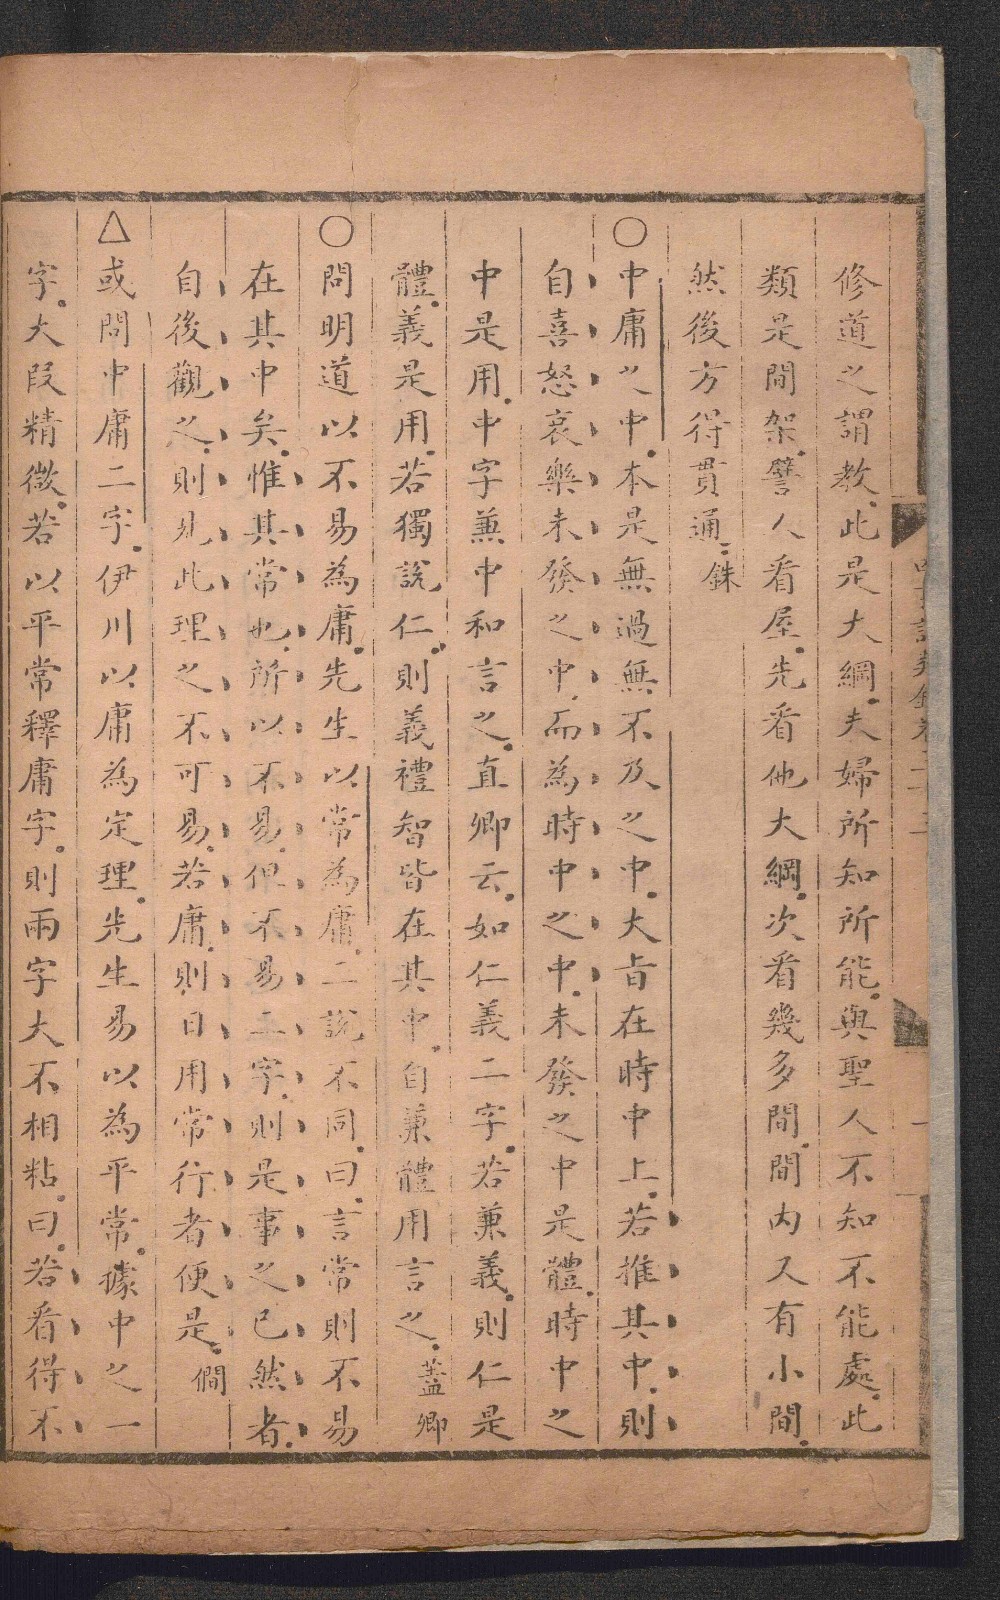 修道之謂教此是大綱夫婦所知所能與聖人不知不能處此
類是間架譬人看屋先看他大綱次看幾多間間內又有小間
然後方得貫通銖
○中庸之中本是無過無不及之中大旨在時中上若推其中則
自喜怒哀樂未發之中而為時中之中未發之中是體時中之
中是用中字兼中和言之直卿云如仁義二字若兼義則仁是
體義是用若獨說仁則義禮智皆在其中自兼體用言之蓋卿
○問明道以不易為庸先生以常為庸二說不同曰言常則不易
在其中矣惟其常也所以不易但不易二字則是事之已然者
自後觀之則見此理之不可易若庸則日用常行者便是僩
△或問中庸二字伊川以庸為定理先生易以為平常據中之一
字大段精微若以平常釋庸字則兩字大不相粘曰若看得不